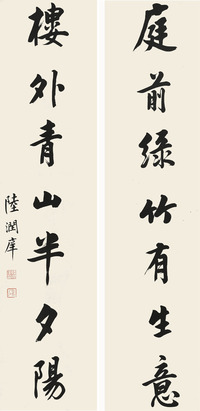 庭前绿竹有生意
樓外青山半夕陽
陸潤庠